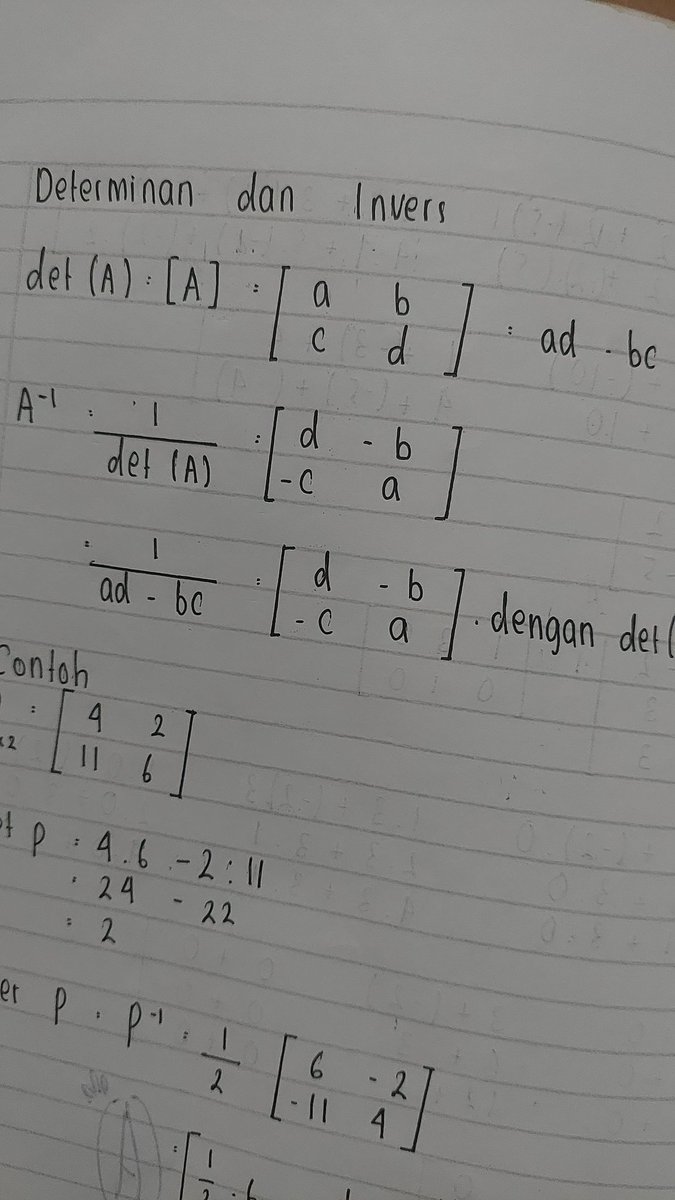 Determinan dan Invers
det (A) = [A] = [ a b
c d ] = ad - bc
A⁻¹ = 1 / det (A) = [ d - b
-c a ]
= 1 / ad - bc = [ d - b
- c a ] . dengan det (
Contoh
= [ 4 2
11 6 ]
P = 4 . 6 - 2 : 11
= 24 - 22
= 2
er P = P⁻¹ = 1 / 2 [ 6 - 2
- 11 4 ]
= [ 1